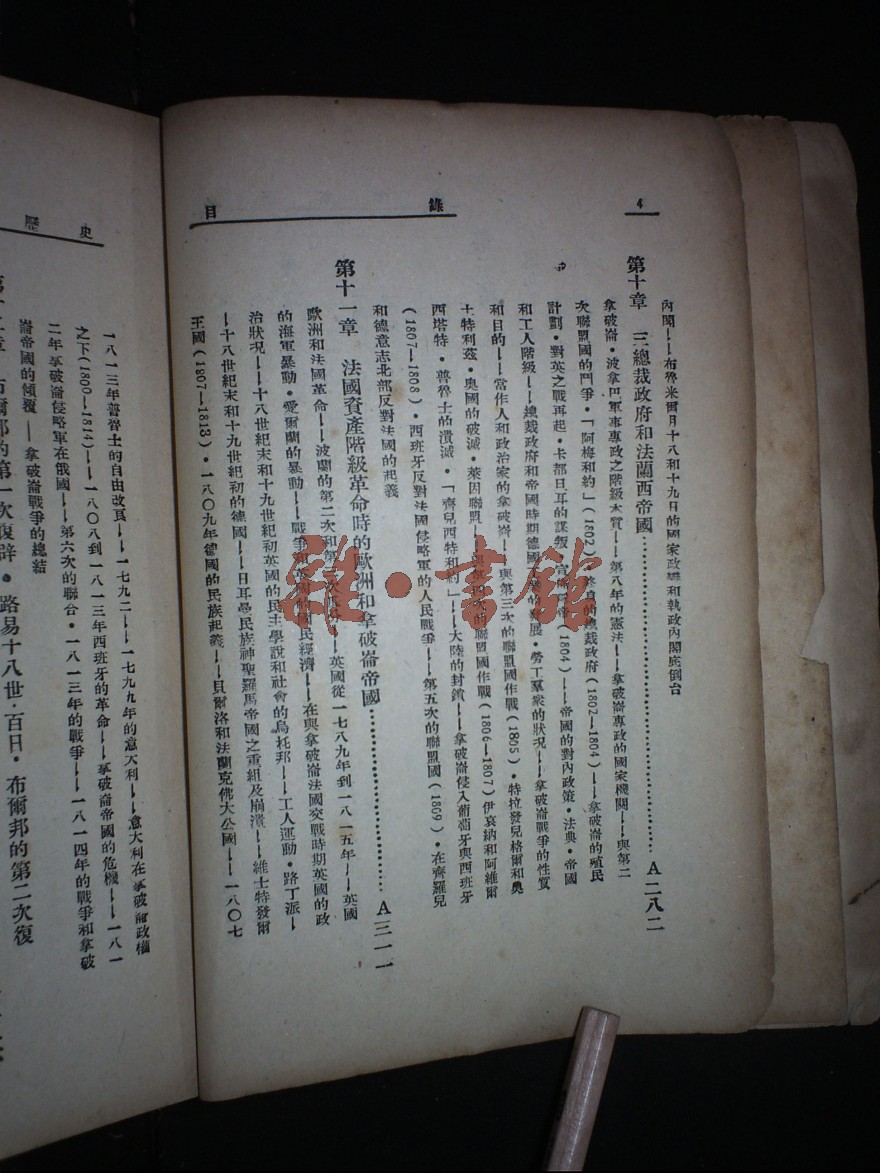 4
錄
目
內閣——布魯米爾月十八和十九日的國家政變和執政內閣底倒台
第十章 三總裁政府和法蘭西帝國 A二八二
拿破崙・波拿巴軍事專政之階級本質——第八年的憲法——拿破崙專政的國家機關——與第二
次聯盟國的鬥爭・「阿梅和約」(1802)終身的總裁政府(1802—1804)——拿破崙的殖民
計劃・對英之戰再起・卡都日耳的謀叛・宣佈稱帝(1804)——帝國的對內政策・法典・帝國
和工人階級——總裁政府和帝國時期德國工業的發展・勞工羣衆的狀況——拿破崙戰爭的性質
和目的——當作人和政治家的拿破崙——與第三次的聯盟國作戰(1805)・特拉發兒格爾和奧
土特利茲・奧國的破滅・萊因聯盟——與第四次的聯盟國作戰(1806—1807)伊哀納和阿維爾
西塔特・普魯士的潰滅・「齊兒西特和約」——大陸的封鎖——拿破崙侵入葡萄牙與西班牙
(1807—1808)・西班牙反對法國侵略軍的人民戰爭——第五次的聯盟國(1809)・在齊羅兒
和德意志北部反對法國的起義
第十一章 法國資產階級革命時的歐洲和拿破崙帝國 A三一一
歐洲和法國革命——波蘭的第二次和第三次——英國從一七八九年到一八一五年——英國
的海軍暴動・愛爾蘭的暴動——戰爭和英國的國民經濟——在與拿破崙法國交戰時期英國的政
治狀況——十八世紀末和十九世紀初英國的民主學說和社會的烏托邦——工人運動・路丁派—
—十八世紀末和十九世紀初的德國——日耳曼民族神聖羅馬帝國之重組及崩潰——維士特發爾
王國(1807—1813)・一八〇九年德國的民族起義——貝爾洛和法蘭克佛大公國——一八〇七
史
歷
一八一三年普魯士的自由改良——一七九二——一七九九年的意大利——意大利在拿破崙政權
之下(1800—1814)——一八〇八到一八一三年西班牙的革命——拿破崙帝國的危機——一八一
二年拿破崙侵略軍在俄國——第六次的聯合・一八一三年的戰爭——一八一四年的戰爭和拿破
崙帝國的傾覆——拿破崙戰爭的總結
布爾邦的第一次復辟・路易十八世・百日・布爾邦的第二次復
雜・書館